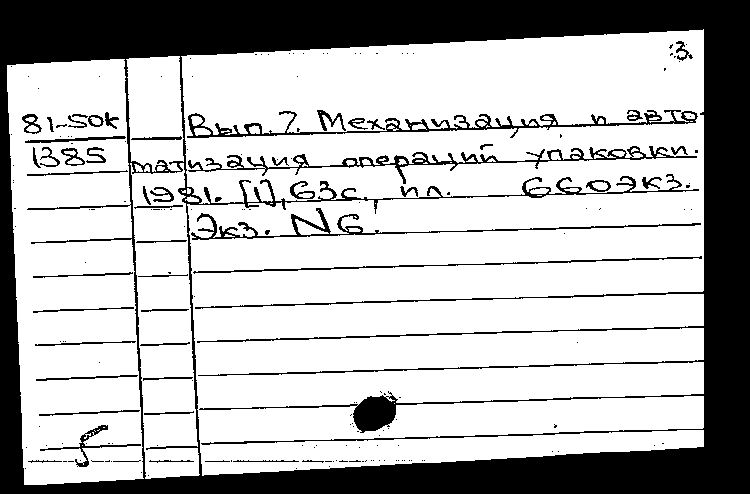 3.
81-50к Вып. 7. Механизация и авто-
1385 матизация операций упаковки.
1981. [1], 63с., ил. 660экз.
Экз. N6.
5